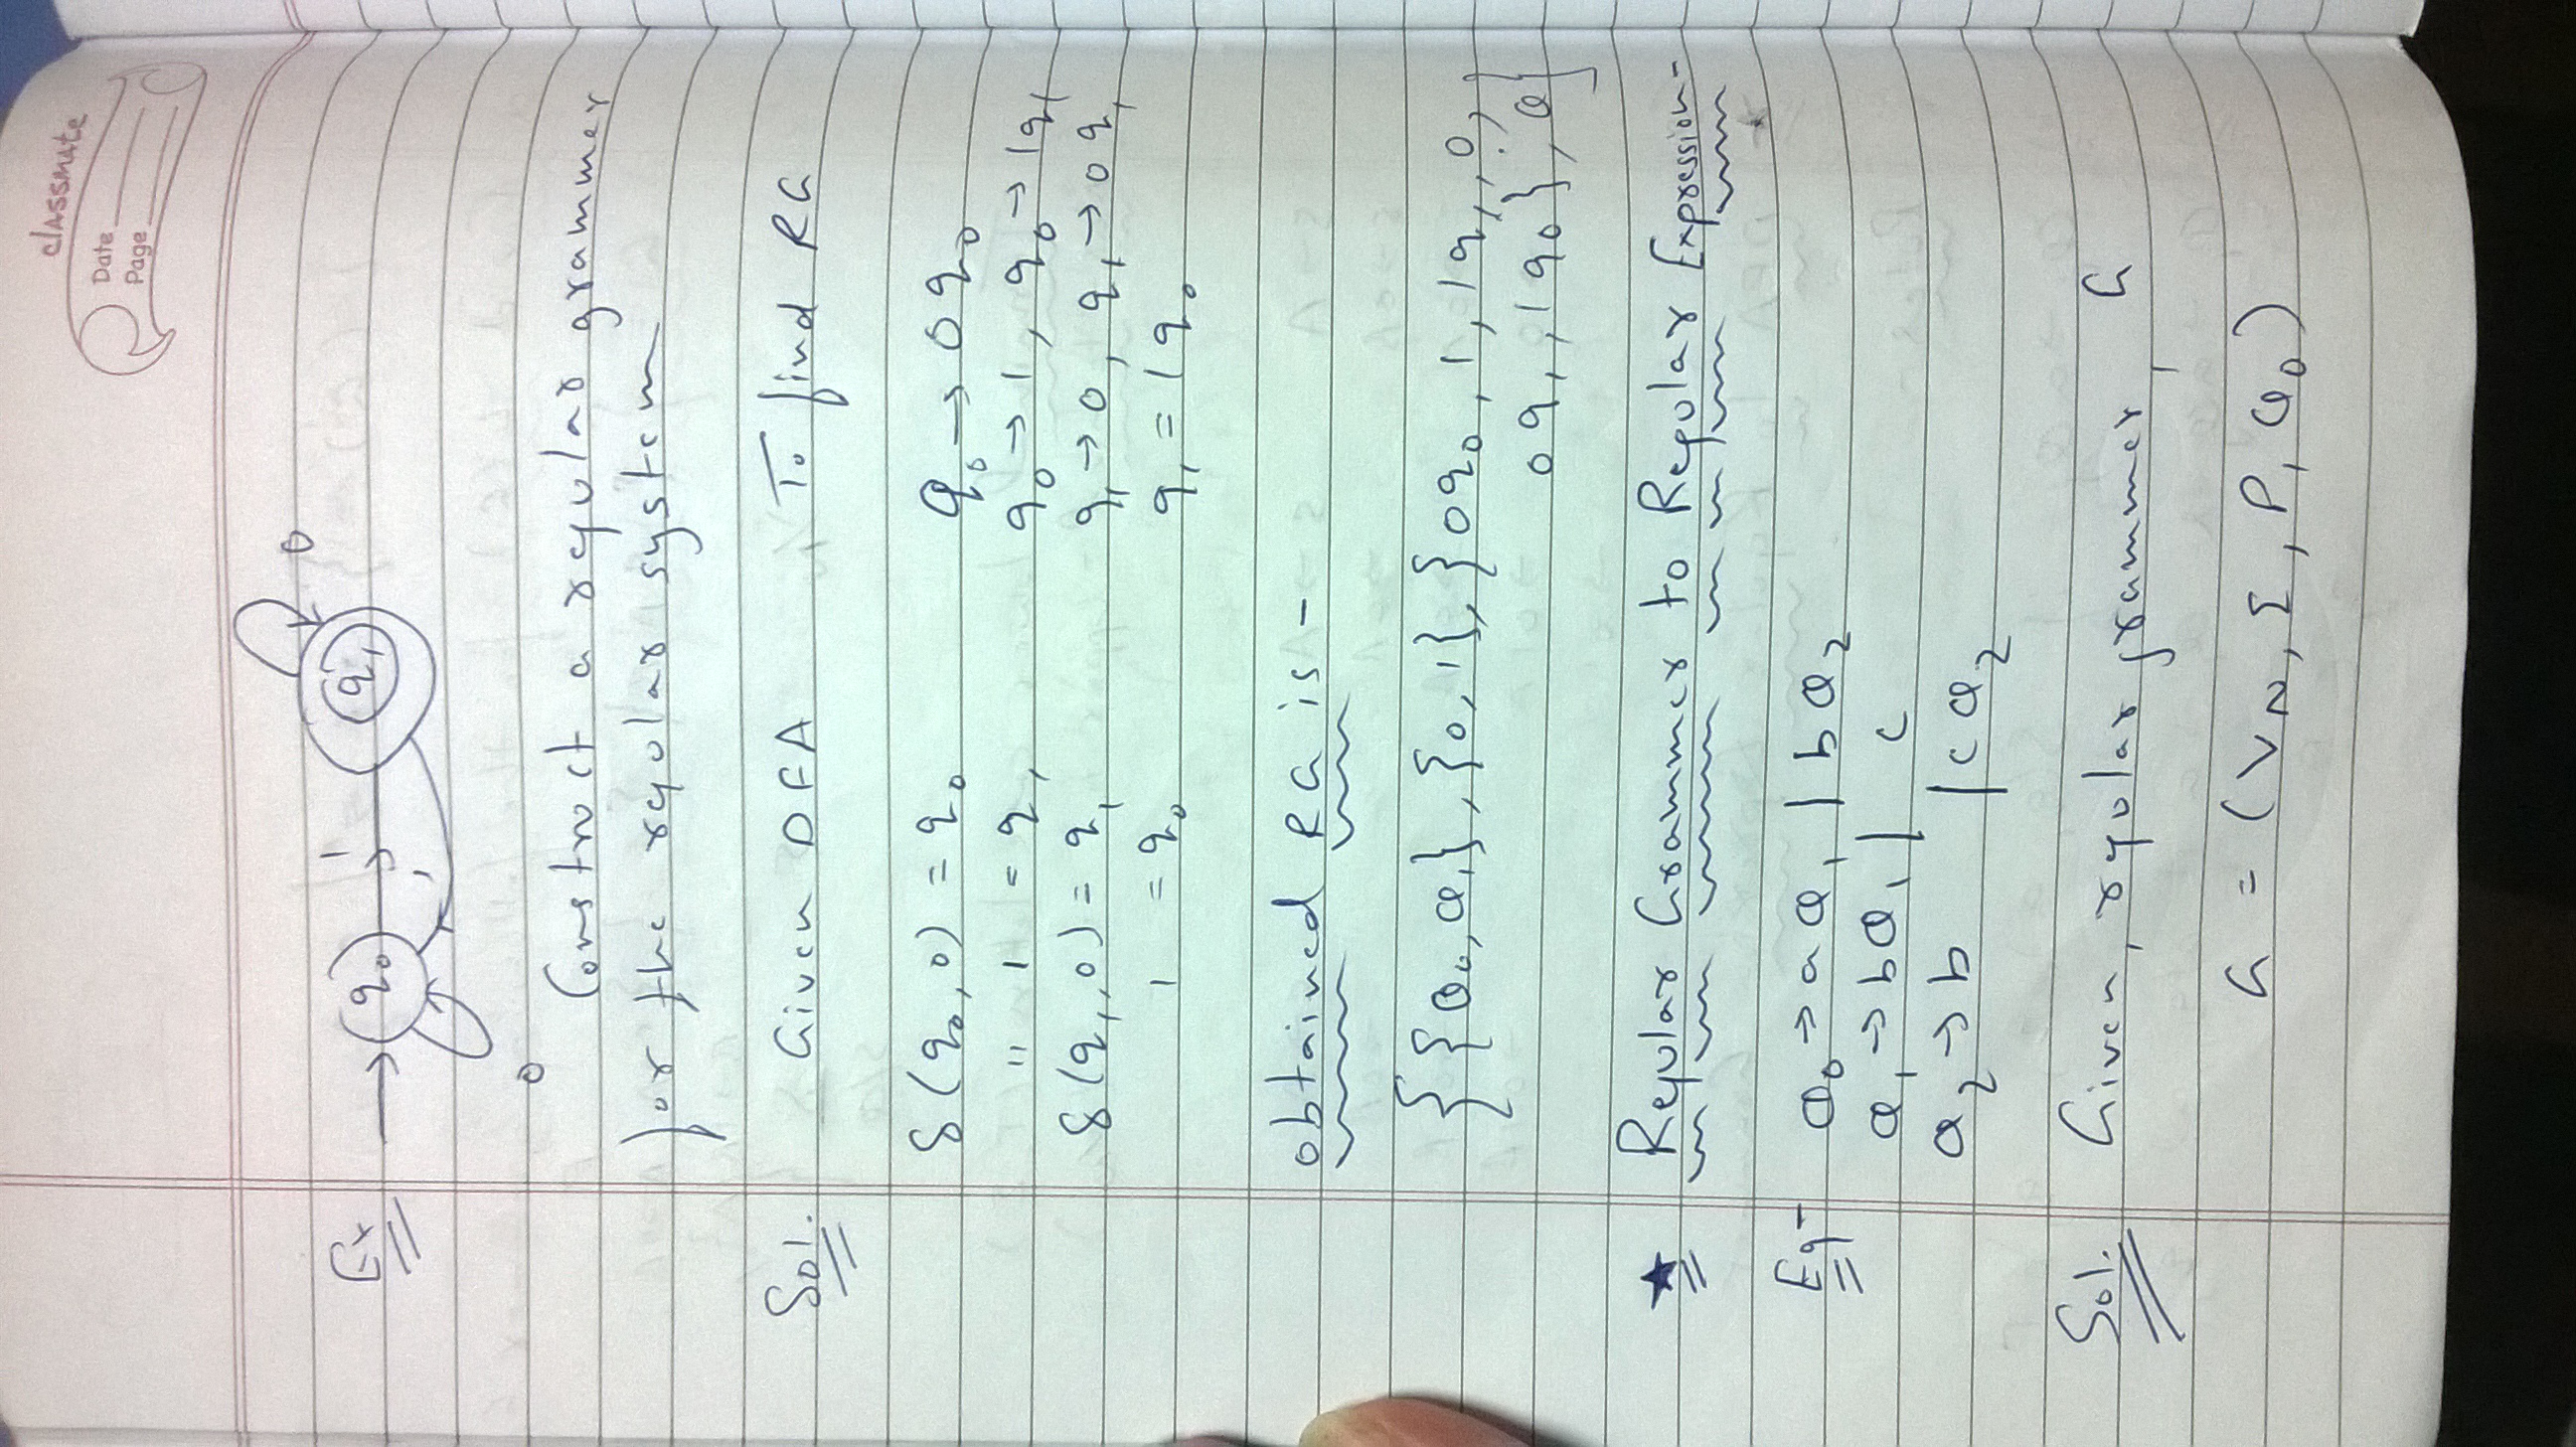 classmate
Date
Page
Ex
q₀ 1 q₁ 0
1
0
Construct a regular grammer
for the regular system
Sol. Given DFA To find RG
δ(q₀,0) = q₀ q₀ → 0q₀
" 1 = q₁ q₀ → 1, q₀ → 1q₁
δ(q₁,0) = q₁ q₁ → 0, q₁ → 0q₁
1 = q₀ q₁ = 1q₀
obtained RG is -
{ {Q₀, Q₁}, {0, 1}, {0q₀, 1, 1q₁, 0,
0q₁, 1q₀}, Q}
★ Regular Grammer to Regular Expression-
Eg- Q₀ → aQ₁ | bQ₂
Q₁ → bQ₁ | c
Q₂ → b | cQ₂
Sol. Given, regular grammer, G
G = (V_N, Σ, P, Q₀)